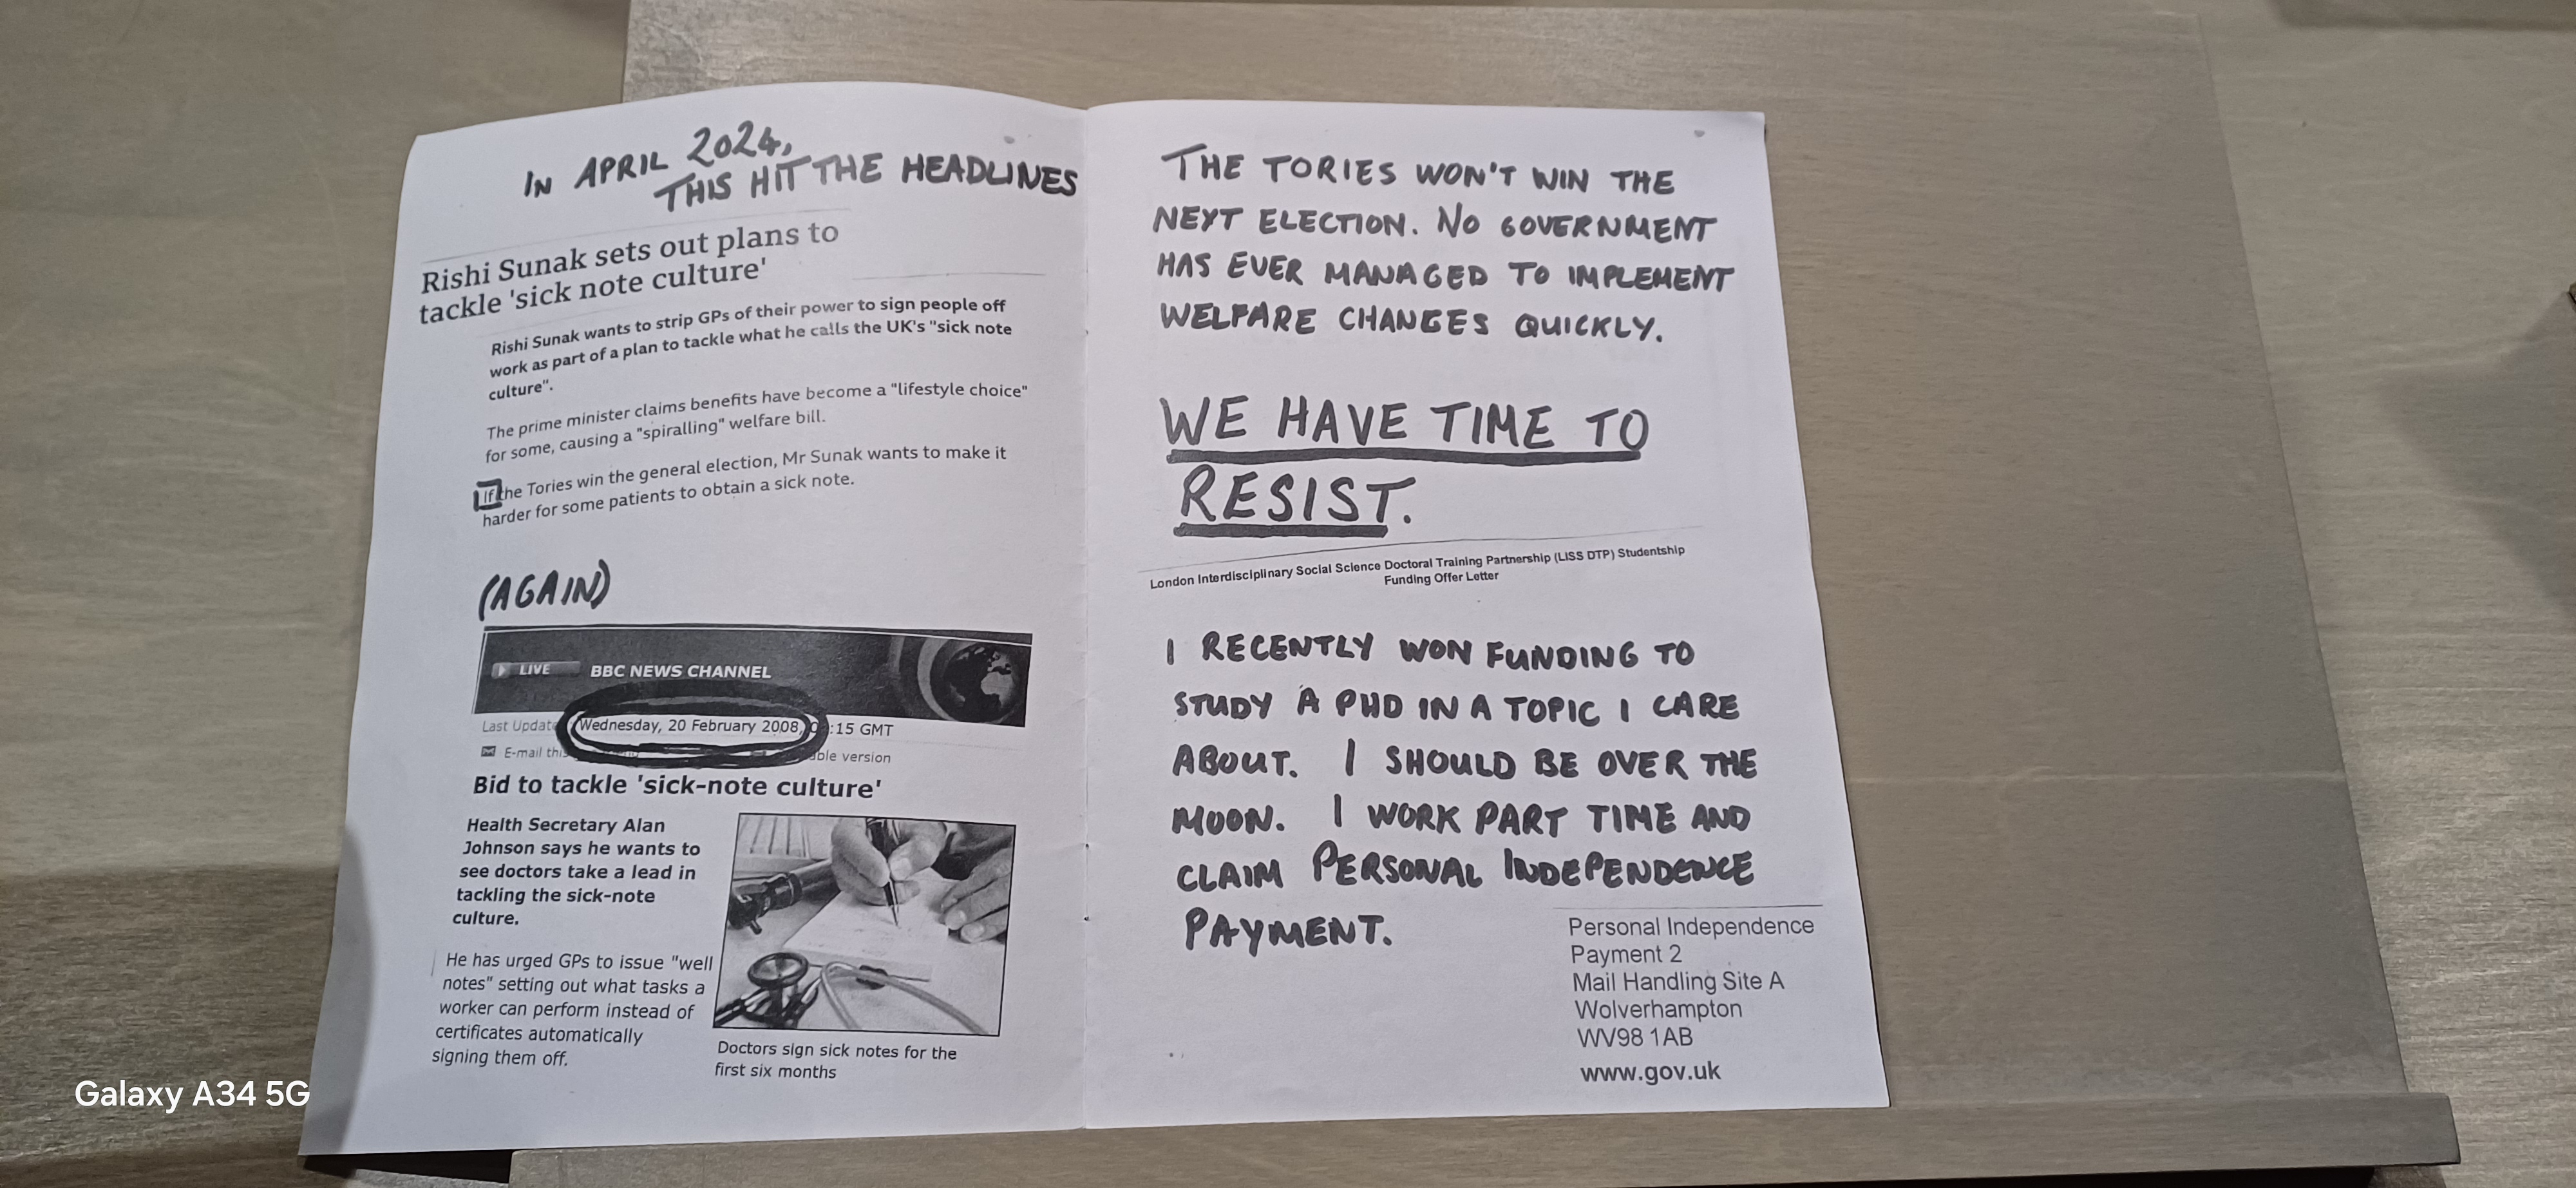 IN APRIL 2024,
THIS HIT THE HEADLINES
Rishi Sunak sets out plans to
tackle 'sick note culture'
Rishi Sunak wants to strip GPs of their power to sign people off
work as part of a plan to tackle what he calls the UK's "sick note
culture".
The prime minister claims benefits have become a "lifestyle choice"
for some, causing a "spiralling" welfare bill.
If the Tories win the general election, Mr Sunak wants to make it
harder for some patients to obtain a sick note.
(AGAIN)
LIVE BBC NEWS CHANNEL
Last Update Wednesday, 20 February 2008, :15 GMT
E-mail this version
Bid to tackle 'sick-note culture'
Health Secretary Alan
Johnson says he wants to
see doctors take a lead in
tackling the sick-note
culture.
He has urged GPs to issue "well
notes" setting out what tasks a
worker can perform instead of
certificates automatically
signing them off.
Doctors sign sick notes for the
first six months
THE TORIES WON'T WIN THE
NEXT ELECTION. NO GOVERNMENT
HAS EVER MANAGED TO IMPLEMENT
WELFARE CHANGES QUICKLY.
WE HAVE TIME TO
RESIST.
London Interdisciplinary Social Science Doctoral Training Partnership (LISS DTP) Studentship
Funding Offer Letter
I RECENTLY WON FUNDING TO
STUDY A PHD IN A TOPIC I CARE
ABOUT. I SHOULD BE OVER THE
MOON. I WORK PART TIME AND
CLAIM PERSONAL INDEPENDENCE
PAYMENT.
Personal Independence
Payment 2
Mail Handling Site A
Wolverhampton
WV98 1AB
www.gov.uk
Galaxy A34 5G